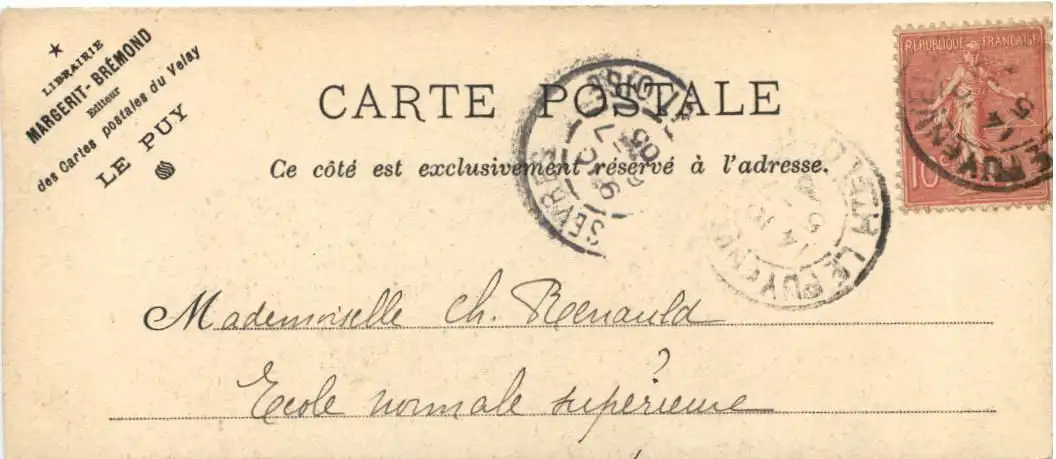 LIBRAIRIE
MARGERIT-BRÉMOND
Editeur
des Cartes postales du Velay
LE PUY
CARTE POSTALE
Ce côté est exclusivement réservé à l'adresse.
RÉPUBLIQUE FRANÇAISE
10
SÈVRES
05
LE PUY EN VELAY
14
5
LE PUY EN VELAY
14
5
Mademoiselle Ch. Renauld
Ecole normale supérieure